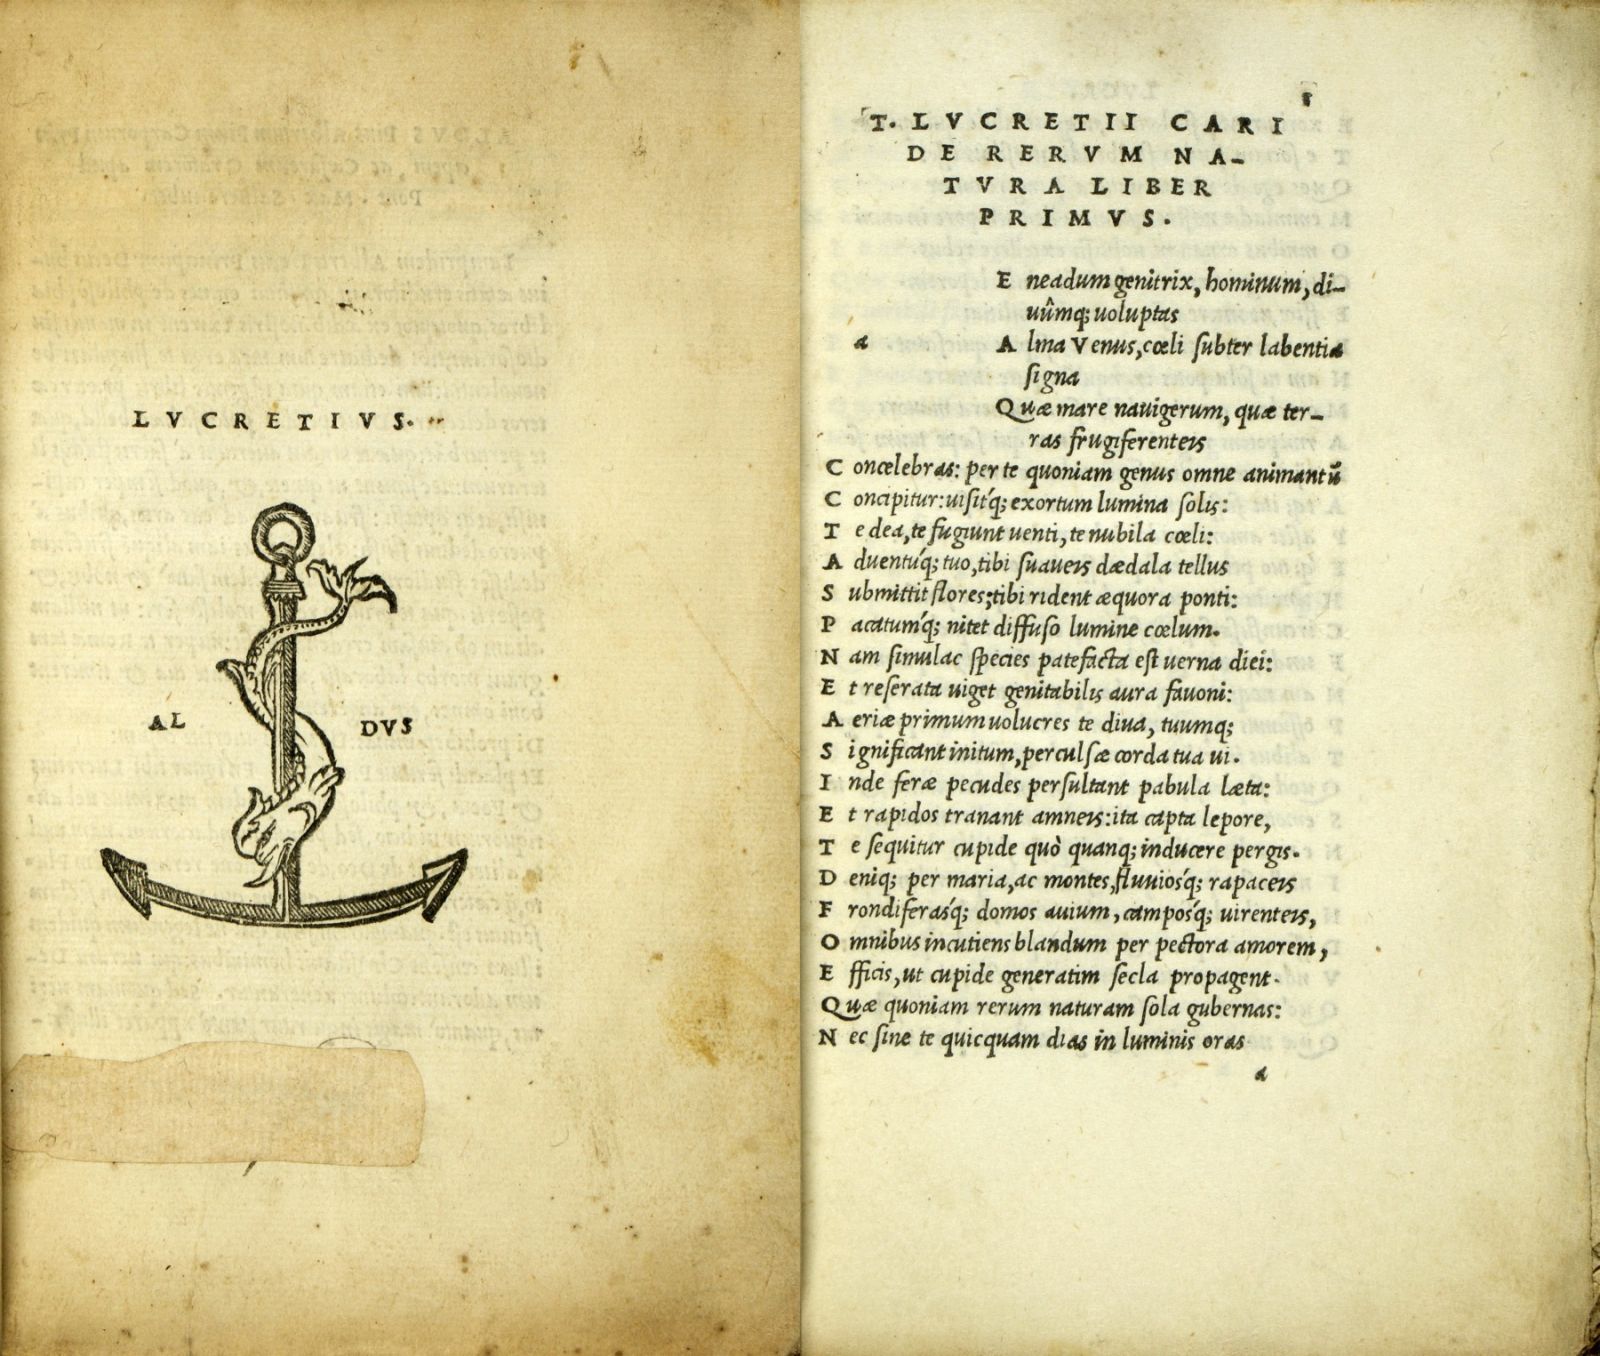 LVCRETIVS.
AL DVS
T. LVCRETII CARI
DE RERVM NA-
TVRA LIBER
PRIMVS.
E neadum genitrix, hominum, di-
uûmq; uoluptas
a A lma Venus, cœli subter labentia
signa
Quæ mare nauigerum, quæ ter-
ras frugiferenteis
C oncelebras: per te quoniam genus omne animantũ
C oncipitur: uisitq́; exortum lumina solis:
T e dea, te fugiunt uenti, te nubila cœli:
A duentúq; tuo, tibi suaueis dædala tellus
S ubmittit flores; tibi rident æquora ponti:
P acatumq́; nitet diffuso lumine cœlum.
N am simulac species patefacta est uerna diei:
E t reserata uiget genitabilis aura fauoni:
A eriæ primum uolucres te diua, tuumq;
S ignificant initum, perculsæ corda tua ui.
I nde feræ pecudes persultant pabula læta:
E t rapidos tranant amneis: ita capta lepore,
T e sequitur cupide quò quanq; inducere pergis.
D eniq; per maria, ac montes, fluuiosq́; rapaceis
F rondiferasq́; domos auium, camposq́; uirenteis,
O mnibus incutiens blandum per pectora amorem,
E fficis, ut cupide generatim secla propagent.
Quæ quoniam rerum naturam sola gubernas:
N ec sine te quicquam dias in luminis oras
a